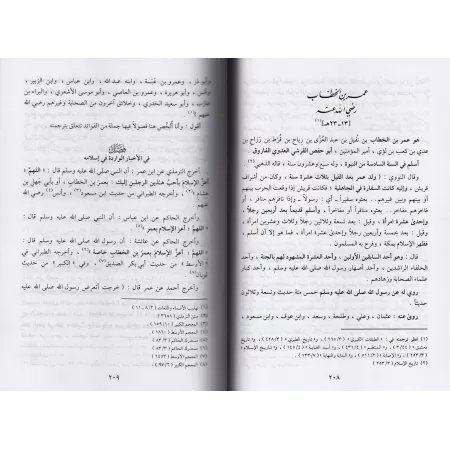 عمر بن الخطاب
رضي الله عنه
[١٣-٢٣هـ](١)
هو عمر بن الخطاب بن نفيل بن عبد العزى بن رياح بن قُرْط بن رَزَاح بن
عدي بن كعب بن لؤي ، أمير المؤمنين ، أبو حفص القرشي العدوي الفاروق .
أسلم في السنة السادسة من النبوة ، وله سبع وعشرون سنة ، قاله الذهبي(٢)
وقال النووي : ( ولد عمر بعد الفيل بثلاث عشرة سنة ، وكان من أشراف
قريش ، وإليه كانت السفارة في الجاهلية ؛ فكانت قريش إذا وقعت الحرب بينهم
أو بينهم وبين غيرهم.. بعثوه سفيراً ؛ أي : رسولاً ، وإذا نافرهم منافر ، أو
فاخرهم مفاخر.. بعثوه منافراً أو مفاخراً ، وأسلم قديماً بعد أربعين رجلاً
وإحدى عشرة امرأة ، وقيل : بعد تسعة وثلاثين رجلاً وثلاث وعشرين امرأة ،
وقيل : بعد خمسة وأربعين رجلاً وإحدى عشرة امرأة ، فما هو إلا أن أسلم ،
فظهر الإسلام بمكة ، وفرح به المسلمون .
قال : وهو أحد السابقين الأولين ، وأحد العشرة المشهود لهم بالجنة ، وأحد
الخلفاء الراشدين ، وأحد أصهار رسول الله صلى الله عليه وسلم ، وأحد كبار
علماء الصحابة وزهادهم .
روي له عن رسول الله صلى الله عليه وسلم خمس مئة حديث وتسعة وثلاثون
حديثاً .
روى عنه : عثمان ، وعلي ، وطلحة ، وسعد ، وابن عوف ، وابن مسعود ،
(١) انظر ترجمته في : « الطبقات الكبرى »
(٢) تاريخ الإسلام
٢٠٨
وأبو ذر ، وعمرو بن عَبَسة ، وابنه عبد الله ، وابن عباس ، وابن الزبير ،
وأنس ، وأبو هريرة ، وعمرو بن العاصي ، وأبو موسى الأشعري ، والبراء بن
عازب ، وأبو سعيد الخدري ، وخلائق آخرون من الصحابة وغيرهم رضي الله
أقول : وأنا ألخص هنا فصولاً فيها جملة من الفوائد تتعلق بترجمته
فصل
في الأخبار الواردة في إسلامه
أخرج الترمذي عن ابن عمر : أن النبي صلى الله عليه وسلم قال : « اللهم ؛
أعزَّ الإسلام بأحبِّ هذين الرجلين إليك : بعمر بن الخطاب ، أو بأبي جهل بن
وأخرج الحاكم عن ابن عباس : أن النبي صلى الله عليه وسلم قال :
« اللهم ؛ أعزَّ الإسلام بعمر
وأخرج الحاكم عن عائشة : أن رسول الله صلى الله عليه وسلم قال :
« اللهم ؛ أعزَّ الإسلام بعمر بن الخطاب خاصة » ، وأخرجه الطبراني في
« الأوسط » من حديث أبي بكر الصديق ، وفي « الكبير » من حديث
ثوبان
وأخرج أحمد عن عمر قال : ( خرجت أتعرض رسول الله صلى الله عليه وسلم
(١) تهذيب الأسماء واللغات
(٢) سنن الترمذي
(٣) المعجم الكبير
(٤) المعجم الأوسط
(٥) المستدرك على الصحيحين
(٦) المستدرك على الصحيحين
(٧) المعجم الأوسط
(٨) المعجم الكبير
٢٠٩